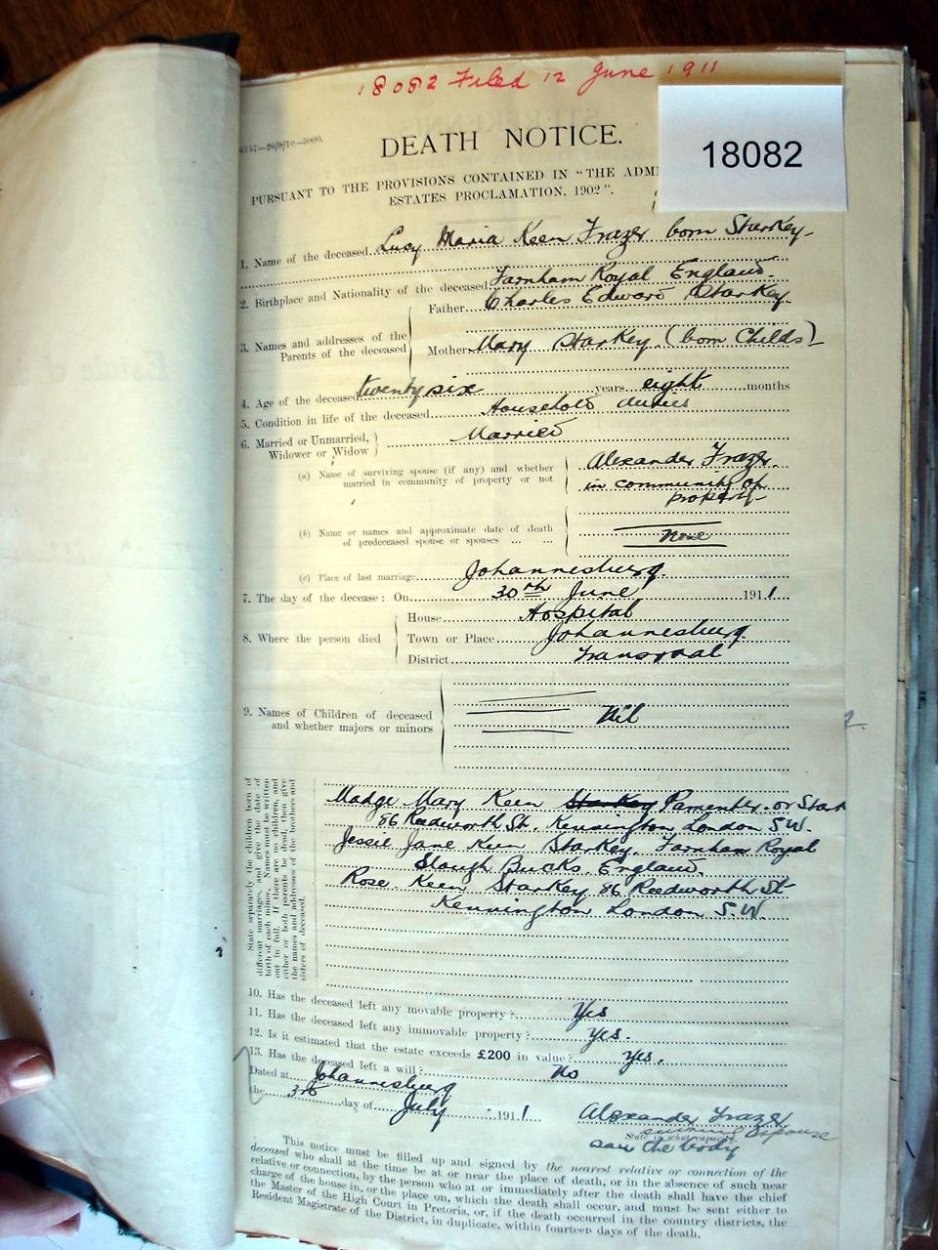 18082 Filed 12 June 1911
18082
DEATH NOTICE.
PURSUANT TO THE PROVISIONS CONTAINED IN "THE ADM
ESTATES PROCLAMATION, 1902".
1. Name of the deceased Lucy Maria Keen Frazer born Starkey
2. Birthplace and Nationality of the deceased Farnham Royal England.
3. Names and addresses of the Parents of the deceased
Father Charles Edward Starkey
Mother Mary Starkey (born Childs)
4. Age of the deceased twenty six years eight months
5. Condition in life of the deceased Household duties
6. Married or Unmarried, Widower or Widow Married
(a) Name of surviving spouse (if any) and whether
married in community of property or not
Alexander Frazer.
in community of
property
(b) Name or names and approximate date of death
of predeceased spouse or spouses ... ... None
(c) Place of last marriage Johannesburg.
7. The day of the decease: On 30th June 1911
8. Where the person died
House Hospital
Town or Place Johannesburg
District Transvaal
9. Names of Children of deceased
and whether majors or minors
Nil
State separately the children born of
different marriages, and give the date of
birth of each minor. Names must be written
out in full. If there are no children, and
either or both parents be dead, then give
the names and addresses of the brothers and
sisters of deceased.
Madge Mary Keen Starkey Parmenter or Star
86 Reedworth St. Kennington London S.W.
Jessie Jane Keen Starkey. Farnham Royal
Slough Bucks England.
Rose Keen Starkey 86 Reedworth St
Kennington London S.W.
10. Has the deceased left any movable property? Yes
11. Has the deceased left any immovable property? Yes.
12. Is it estimated that the estate exceeds £200 in value? Yes.
13. Has the deceased left a will? No
Dated at Johannesburg
the day of July 1911
Alexander Frazer
spouse
State in what capacity.
saw the body
This notice must be filled up and signed by the nearest relative or connection of the
deceased who shall at the time be at or near the place of death, or in the absence of such near
relative or connection, by the person who at or immediately after the death shall have the chief
charge of the house in, or the place on, which the death shall occur, and must be sent either to
the Master of the High Court in Pretoria, or, if the death occurred in the country districts, the
Resident Magistrate of the District, in duplicate, within fourteen days of the death.